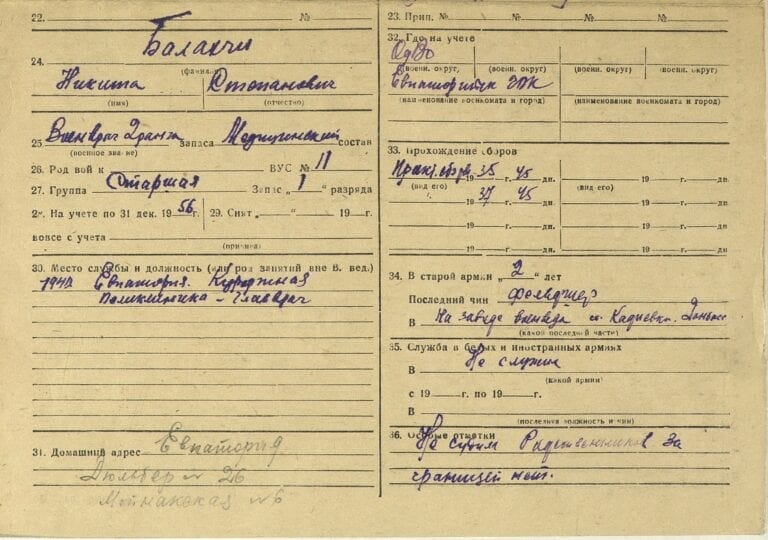 22. №
Балакчи
24.
(фамилия)
Никита Степанович
(имя) (отчество)
25 Военврач 2 ранга запаса Медицинский состав
(военное звание)
26. Род войск ВУС № 11
27. Группа Старшая Запас „1" разряда
28. На учете по 31 дек. 1956 г. 29. Снят „ " 19 г.
вовсе с учета
(причина)
30. Место службы и должность (или род занятий вне В. вед.)
1940 Евпатория. Курортная
Поликлиника – Главврач
31. Домашний адрес Евпатория
Дюльбер № 26
Мойнакская № 6
23. Прип. № № №
32. Где на учете
ОдВО
(военн. округ, (военн. округ) (военн. округ)
Евпаторийск
(наименование военкомата и город) (наименование военкомата и город)
33. Прохождение сборов
Практ. сбор 19 35 г. 45 дн. 19 г. дн.
(вид его) (вид его)
19 37 г. 45 дн. 19 г. дн.
19 г. дн. 19 г. дн.
19 г. дн. 19 г. дн.
34. В старой армии „ 2 " лет
Последний чин фельдшер
В На заводе ст. Кадиевка. Донбасс
(какой последней части)
35. Служба в белых и иностранных армиях
В Не служил
(какой армии)
с 19 г. по 19 г.
В
(последняя должность и чин)
36. Особые отметки
Не судим Родственников за
границей нет.